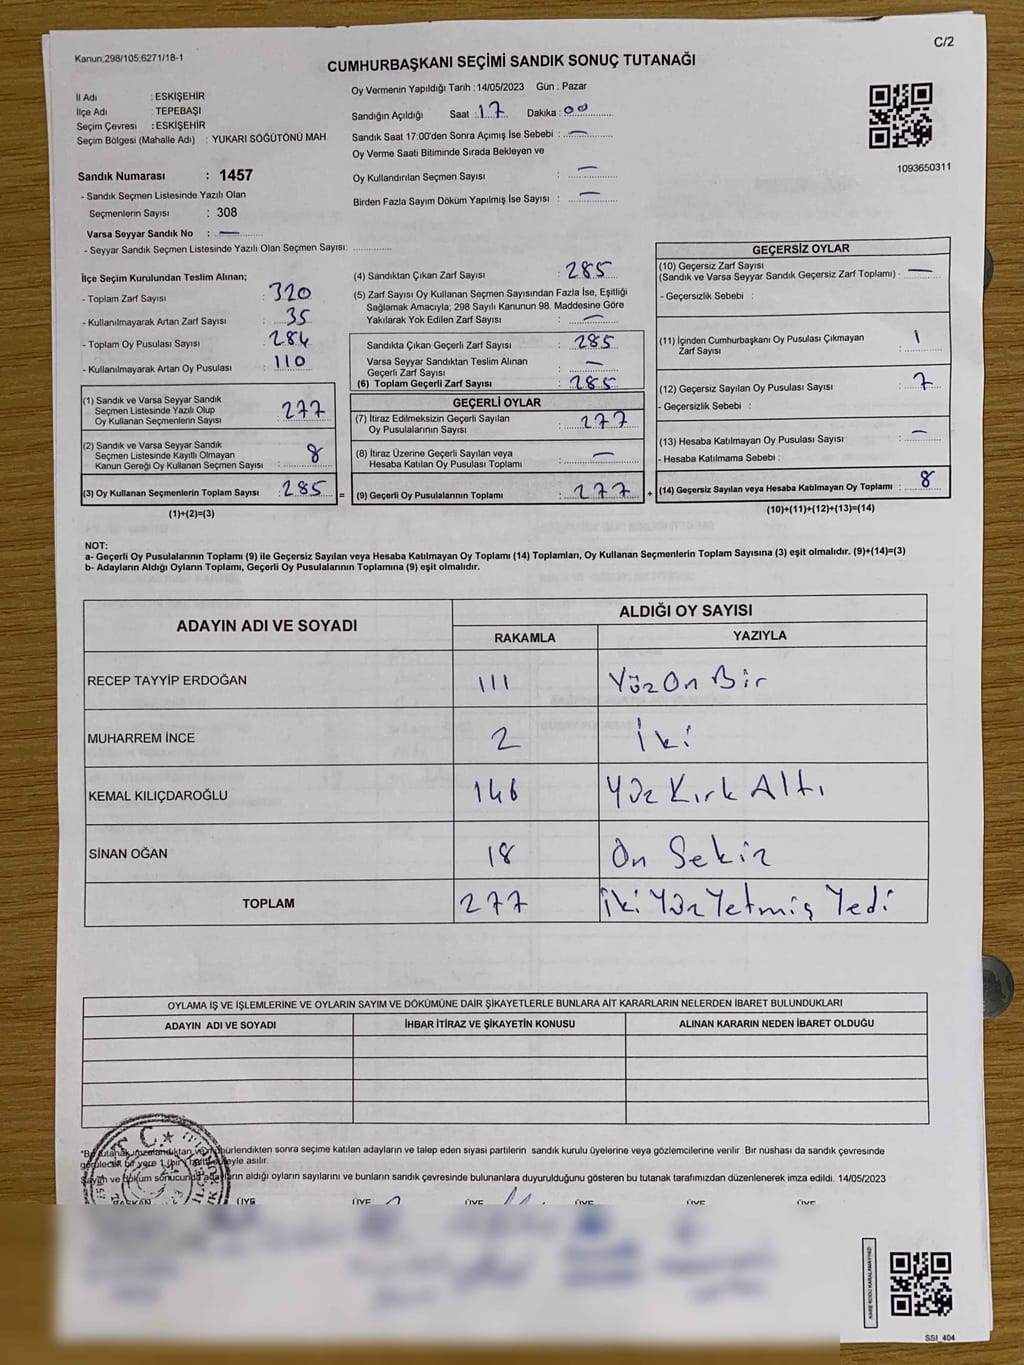 Kanun;298/105;6271/18-1
C/2
CUMHURBAŞKANI SEÇİMİ SANDIK SONUÇ TUTANAĞI
İl Adı : ESKİŞEHİR
İlçe Adı : TEPEBAŞI
Seçim Çevresi : ESKİŞEHİR
Seçim Bölgesi (Mahalle Adı) : YUKARI SÖĞÜTÖNÜ MAH.
Oy Vermenin Yapıldığı Tarih : 14/05/2023 Gün : Pazar
Sandığın Açıldığı Saat : 17 Dakika : 00
Sandık Saat 17:00'den Sonra Açımış İse Sebebi : —
Oy Verme Saati Bitiminde Sırada Bekleyen ve
Oy Kullandırılan Seçmen Sayısı : —
Birden Fazla Sayım Döküm Yapılmış İse Sayısı : —
1093650311
Sandık Numarası : 1457
- Sandık Seçmen Listesinde Yazılı Olan
Seçmenlerin Sayısı : 308
Varsa Seyyar Sandık No : —
- Seyyar Sandık Seçmen Listesinde Yazılı Olan Seçmen Sayısı:
İlçe Seçim Kurulundan Teslim Alınan;
- Toplam Zarf Sayısı : 320
- Kullanılmayarak Artan Zarf Sayısı : 35
- Toplam Oy Pusulası Sayısı : 284
- Kullanılmayarak Artan Oy Pusulası : 110
(1) Sandık ve Varsa Seyyar Sandık
Seçmen Listesinde Yazılı Olup
Oy Kullanan Seçmenlerin Sayısı : 277
(2) Sandık ve Varsa Seyyar Sandık
Seçmen Listesinde Kayıtlı Olmayan
Kanun Gereği Oy Kullanan Seçmen Sayısı : 8
(3) Oy Kullanan Seçmenlerin Toplam Sayısı : 285 =
(1)+(2)=(3)
(4) Sandıktan Çıkan Zarf Sayısı : 285
(5) Zarf Sayısı Oy Kullanan Seçmen Sayısından Fazla İse, Eşitliği
Sağlamak Amacıyla; 298 Sayılı Kanunun 98. Maddesine Göre
Yakılarak Yok Edilen Zarf Sayısı : —
Sandıkta Çıkan Geçerli Zarf Sayısı : 285
Varsa Seyyar Sandıktan Teslim Alınan
Geçerli Zarf Sayısı : —
(6) Toplam Geçerli Zarf Sayısı : 285
GEÇERLİ OYLAR
(7) İtiraz Edilmeksizin Geçerli Sayılan
Oy Pusulalarının Sayısı : 277
(8) İtiraz Üzerine Geçerli Sayılan veya
Hesaba Katılan Oy Pusulası Toplamı : —
(9) Geçerli Oy Pusulalarının Toplamı : 277 +
GEÇERSİZ OYLAR
(10) Geçersiz Zarf Sayısı
(Sandık ve Varsa Seyyar Sandık Geçersiz Zarf Toplamı) : —
- Geçersizlik Sebebi :
(11) İçinden Cumhurbaşkanı Oy Pusulası Çıkmayan
Zarf Sayısı : 1
(12) Geçersiz Sayılan Oy Pusulası Sayısı : 7
- Geçersizlik Sebebi :
(13) Hesaba Katılmayan Oy Pusulası Sayısı : —
- Hesaba Katılmama Sebebi :
(14) Geçersiz Sayılan veya Hesaba Katılmayan Oy Toplamı : 8
(10)+(11)+(12)+(13)=(14)
NOT:
a- Geçerli Oy Pusulalarının Toplamı (9) ile Geçersiz Sayılan veya Hesaba Katılmayan Oy Toplamı (14) Toplamları, Oy Kullanan Seçmenlerin Toplam Sayısına (3) eşit olmalıdır. (9)+(14)=(3)
b- Adayların Aldığı Oyların Toplamı, Geçerli Oy Pusulalarının Toplamına (9) eşit olmalıdır.
ADAYIN ADI VE SOYADI
ALDIĞI OY SAYISI
RAKAMLA YAZIYLA
RECEP TAYYİP ERDOĞAN 111 Yüz On Bir
MUHARREM İNCE 2 İki
KEMAL KILIÇDAROĞLU 146 Yüz Kırk Altı
SİNAN OĞAN 18 On Sekiz
TOPLAM 277 İki Yüz Yetmiş Yedi
OYLAMA İŞ VE İŞLEMLERİNE VE OYLARIN SAYIM VE DÖKÜMÜNE DAİR ŞİKAYETLERLE BUNLARA AİT KARARLARIN NELERDEN İBARET BULUNDUKLARI
ADAYIN ADI VE SOYADI İHBAR İTİRAZ VE ŞİKAYETİN KONUSU ALINAN KARARIN NEDEN İBARET OLDUĞU
seçime katılan adayların ve talep eden siyasi partilerin sandık kurulu üyelerine veya gözlemcilerine verilir Bir nüshası da sandık çevresinde
asılır.
aldığı oyların sayılarını ve bunların sandık çevresinde bulunanlara duyurulduğunu gösteren bu tutanak tarafımızdan düzenlenerek imza edildi. 14/05/2023
T.C.
ÜYE ÜYE ÜYE ÜYE ÜYE ÜYE
SSI_404